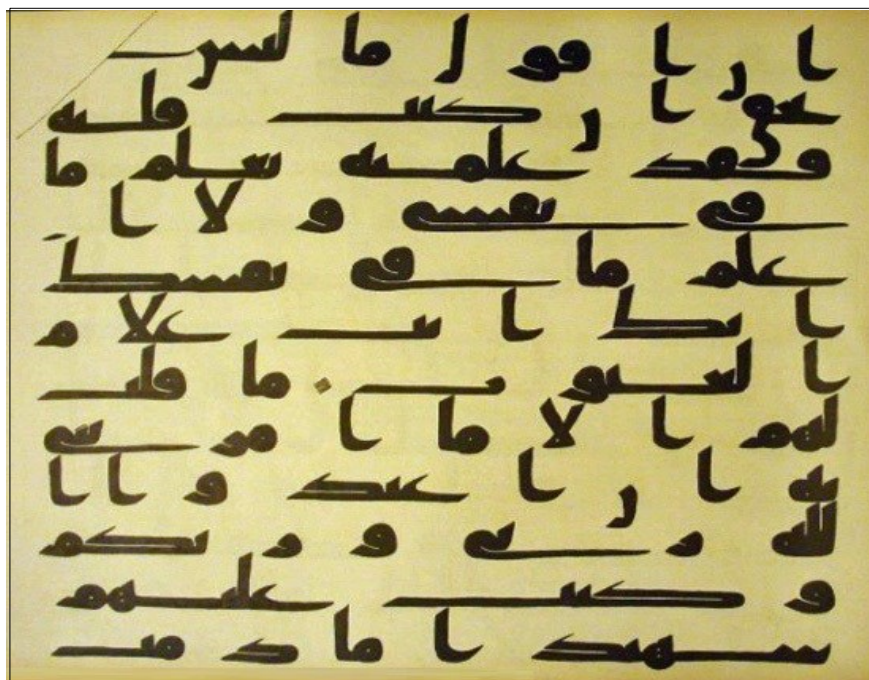 ان اقول ما ليس
بحق ان كنت قلته
فقد علمته تعلم ما
في نفسي و لا ا
علم ما في نفسك
انك انت علام
الغيوب ما قلت
لهم الا ما امرتني
به ان اعبدوا ا
لله ربي و ربكم
و كنت عليهم
شهيدا ما دمت